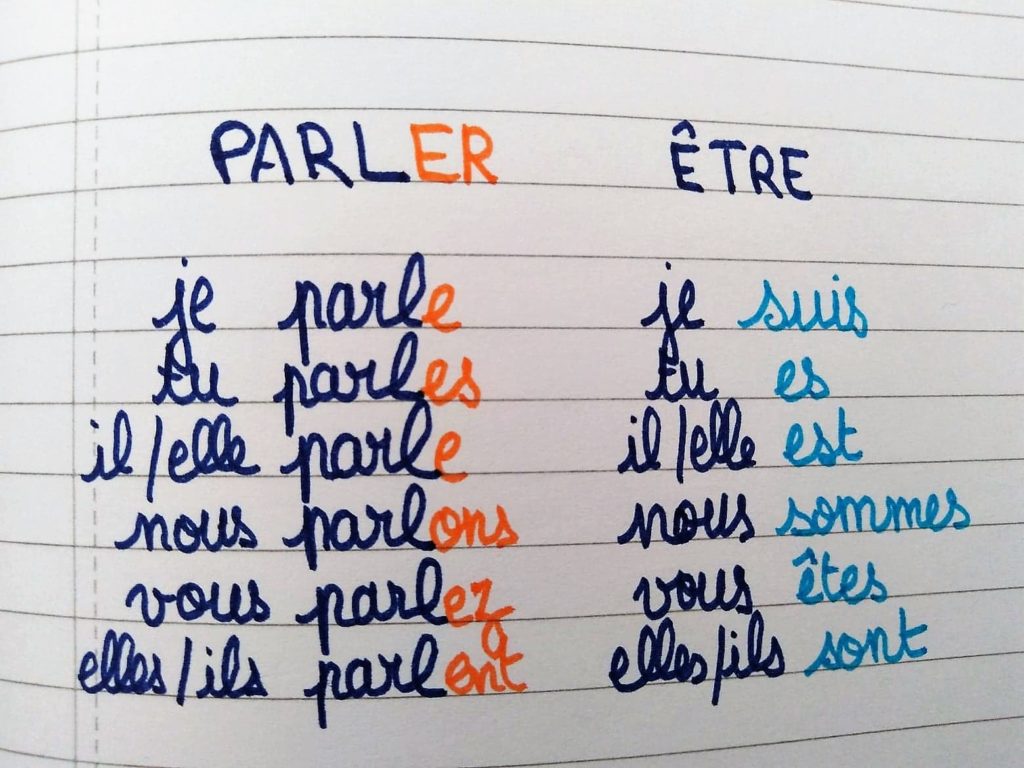 PARLER ÊTRE
je parle je suis
tu parles tu es
il/elle parle il/elle est
nous parlons nous sommes
vous parlez vous êtes
elles/ils parlent elles/ils sont